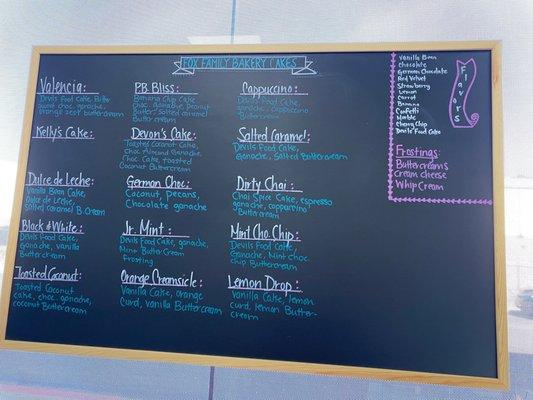 FOX FAMILY BAKERY CAKES
Valencia:
Devils Food Cake, Butter
choc. ganache,
orange zest buttercream
Kelly's Cake:
Dulce de Leche:
Vanilla Bean Cake,
Dulce de Leche,
Salted Caramel B.Cream
Black & White:
Devils Food Cake,
ganache, vanilla
Buttercream
Toasted Coconut:
Toasted Coconut
cake, choc. ganache,
coconut Buttercream
PB Bliss:
Banana Chip Cake
choc. ganache, Peanut
Butter, Salted caramel
Buttercream
Devon's Cake:
Toasted Coconut Cake,
Choc Almond Ganache,
Choc Cake, Toasted
Coconut Buttercream
German Choc:
Coconut, Pecans,
Chocolate ganache
Jr. Mint:
Devils Food Cake, ganache,
Mint ButterCream
frosting
Orange Creamsicle:
Vanilla Cake, orange
curd, vanilla Buttercream
Cappuccino:
Devils Food Cake,
ganache, cappuccino
Buttercream
Salted Caramel:
Devils Food Cake,
Ganache, Salted Buttercream
Dirty Chai:
Chai Spice Cake, espresso
ganache, cappuccino
Buttercream
Mint Cho. Chip:
Devils Food Cake,
Ganache, Mint choc
chip Buttercream
Lemon Drop:
Vanilla Cake, lemon
curd, lemon Butter-
cream
Flavors
Vanilla Bean
chocolate
German Chocolate
Red Velvet
Strawberry
Lemon
Carrot
Banana
Confetti
Marble
Cherry Chip
Devils Food Cake
Frostings:
Buttercreams
Cream cheese
Whip Cream